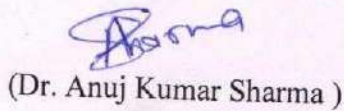 Sharma
(Dr. Anuj Kumar Sharma )